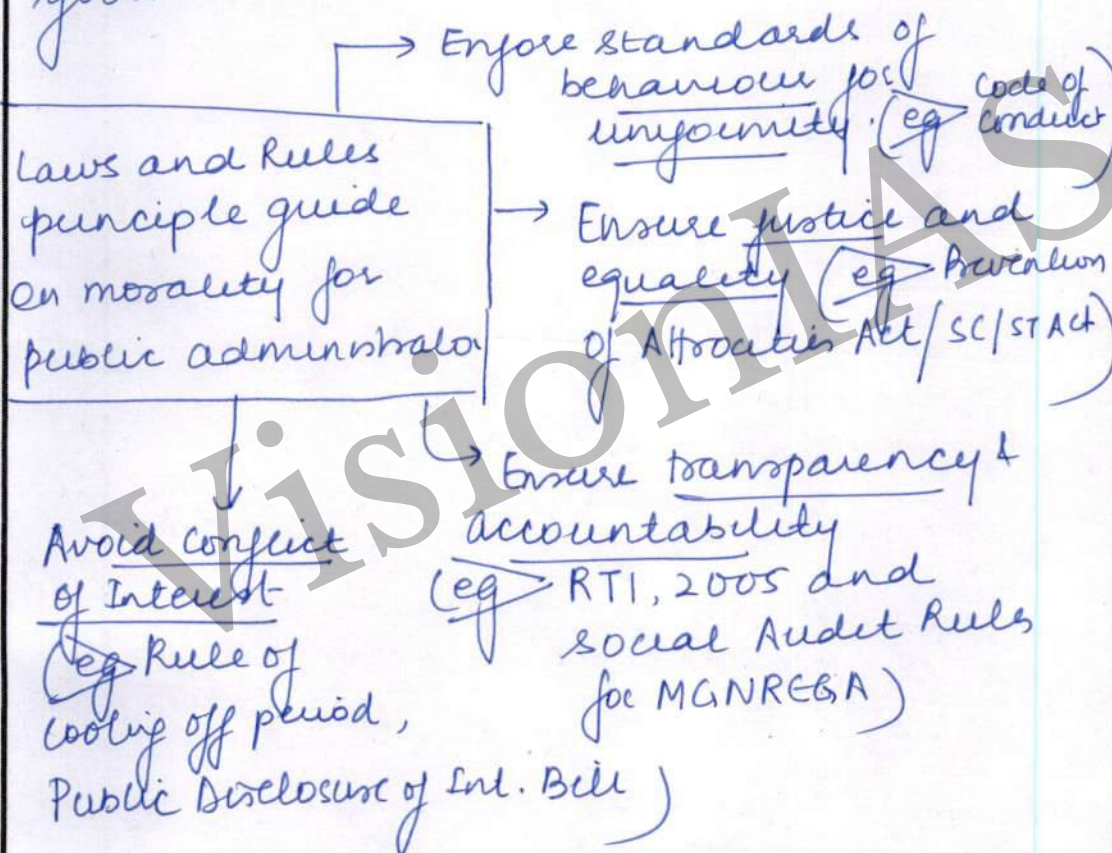 → Enforce standards of
behaviour for
uniformity. (eg > code of
conduct)
Laws and Rules
principle guide
on morality for
public administrator
→ Ensure justice and
equality (eg > Prevention
of Attrocities Act/SC/ST Act)
→ Ensure transparency &
accountability
(eg > RTI, 2005 and
social Audit Rules
for MGNREGA)
Avoid conflict
of Interest
(eg > Rule of
cooling off period,
Public Disclosure of Int. Bill)
VisionIAS